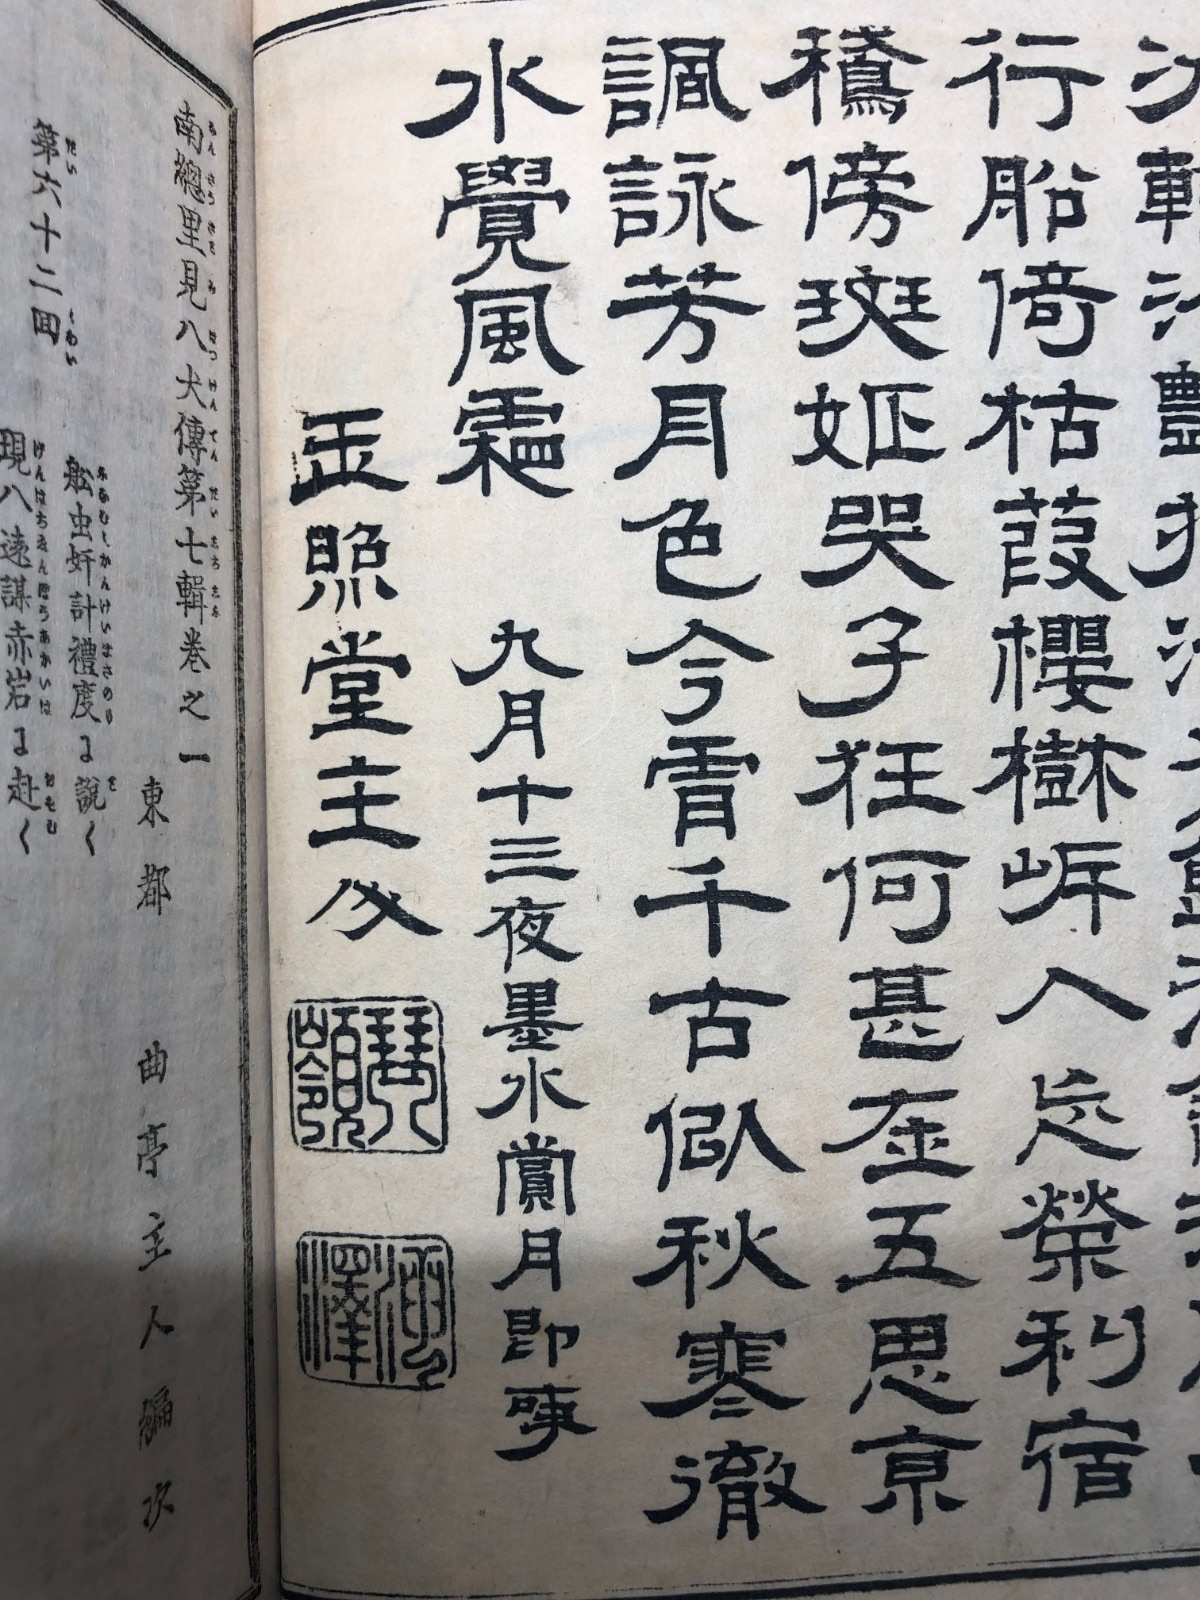 行船倚枯葭櫻樹人忘榮利宿
傍斑姬哭子狂何甚在五思京
諷詠芳月色今宵千古似秋寒徹
水覺風霜　九月十三夜墨水賞月即事
玉照堂主人
琴嶺
南總里見八犬傳第七輯巻之一
東都　曲亭主人編次
第六十二囬
舩虫奸計禮度に説く
現八遠謀赤岩に赴く